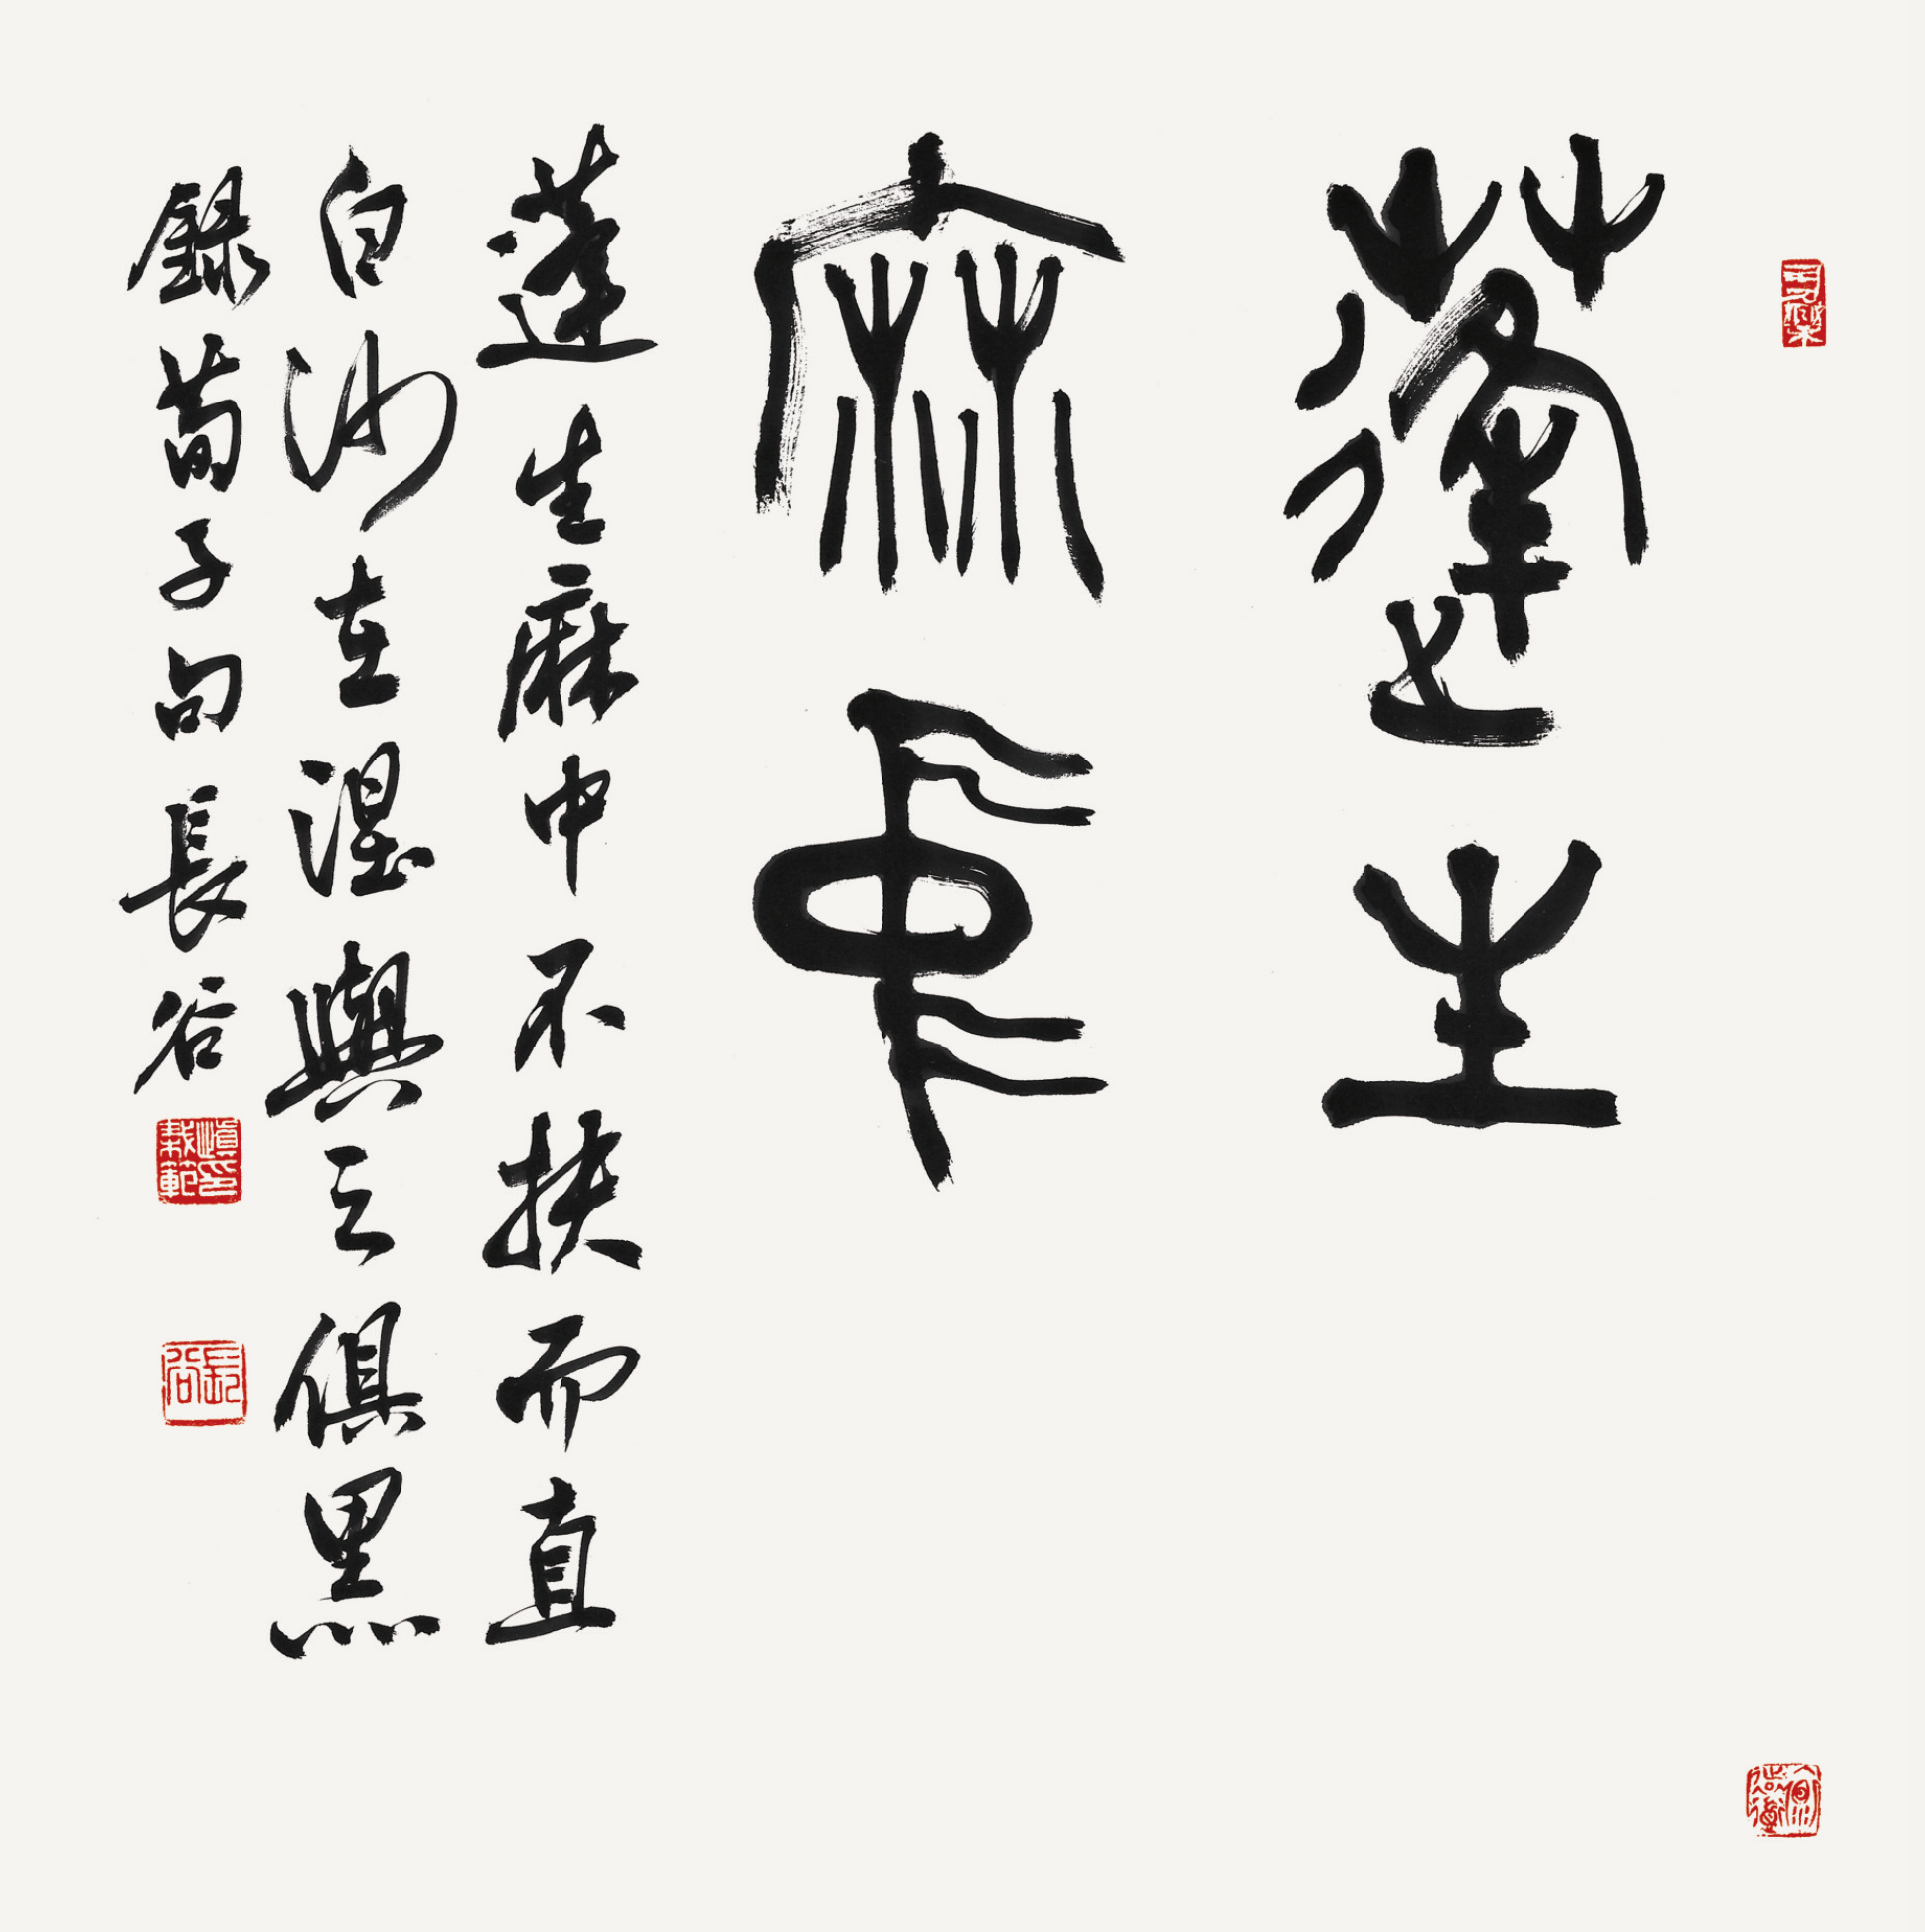 蓬生
麻中
蓬生麻中不扶而直
白沙在涅與之俱黑
錄荀子句長谷
長谷